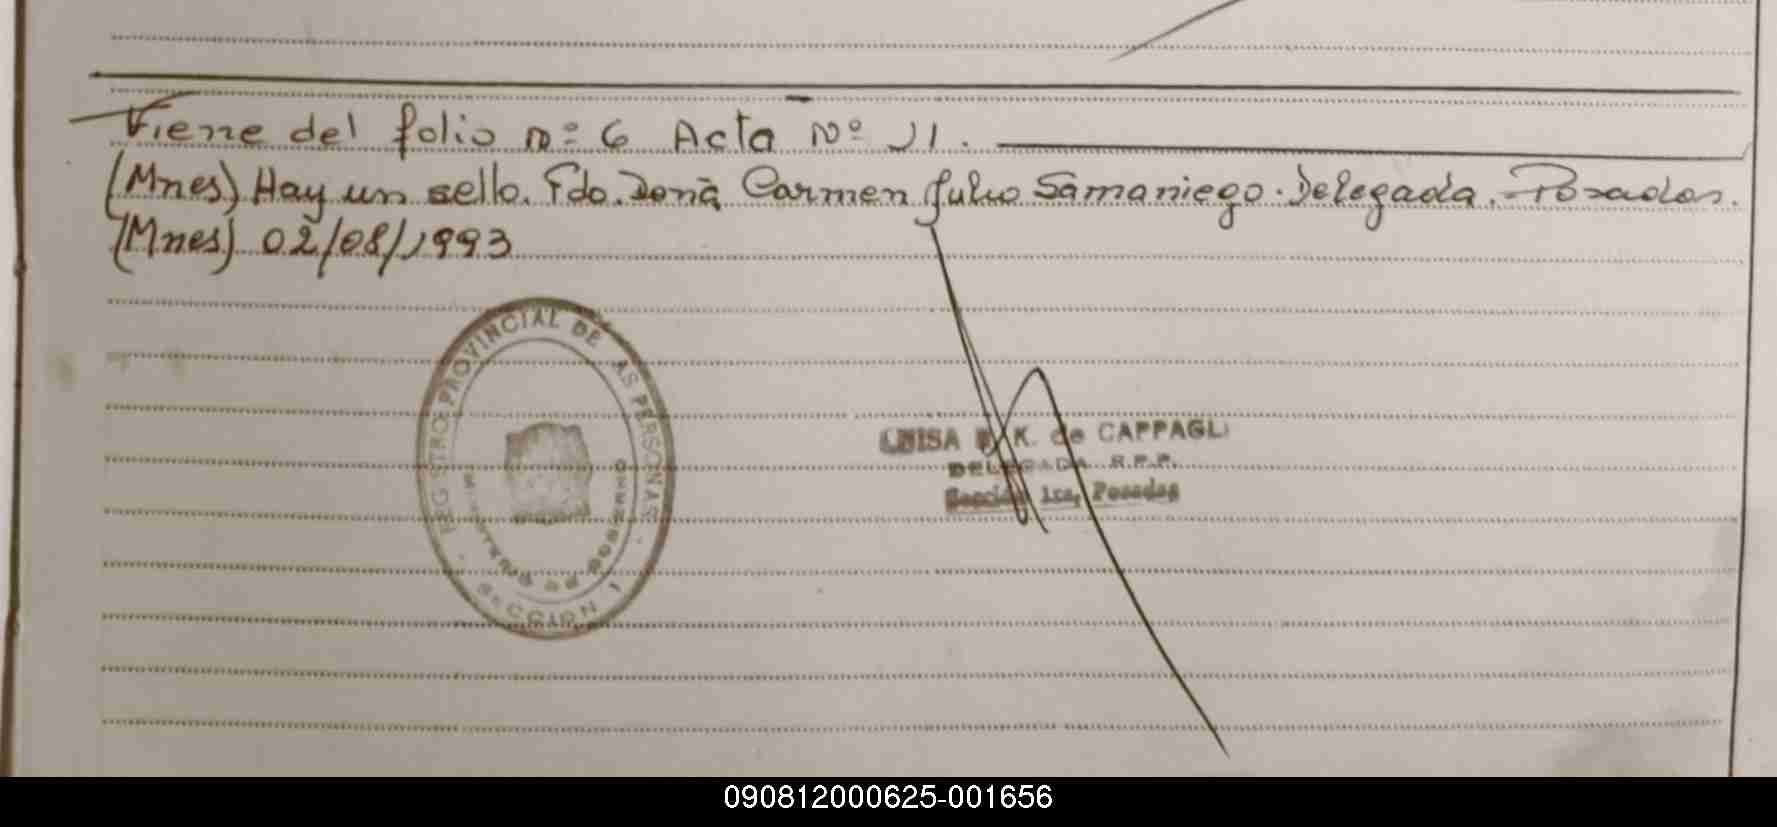 Viene del folio nº 6 Acta Nº 11.
(Mnes) Hay un sello. Fdo. Doña Carmen Julio Samaniego. Delegada. Posadas.
(Mnes) 02/08/1993
REGISTRO PROVINCIAL DE LAS PERSONAS
MINISTERIO DE GOBIERNO
SECCION 1
LUISA K. de CAPPAGLI
DELEGADA R.P.P.
Sección 1ra, Posadas
090812000625-001656